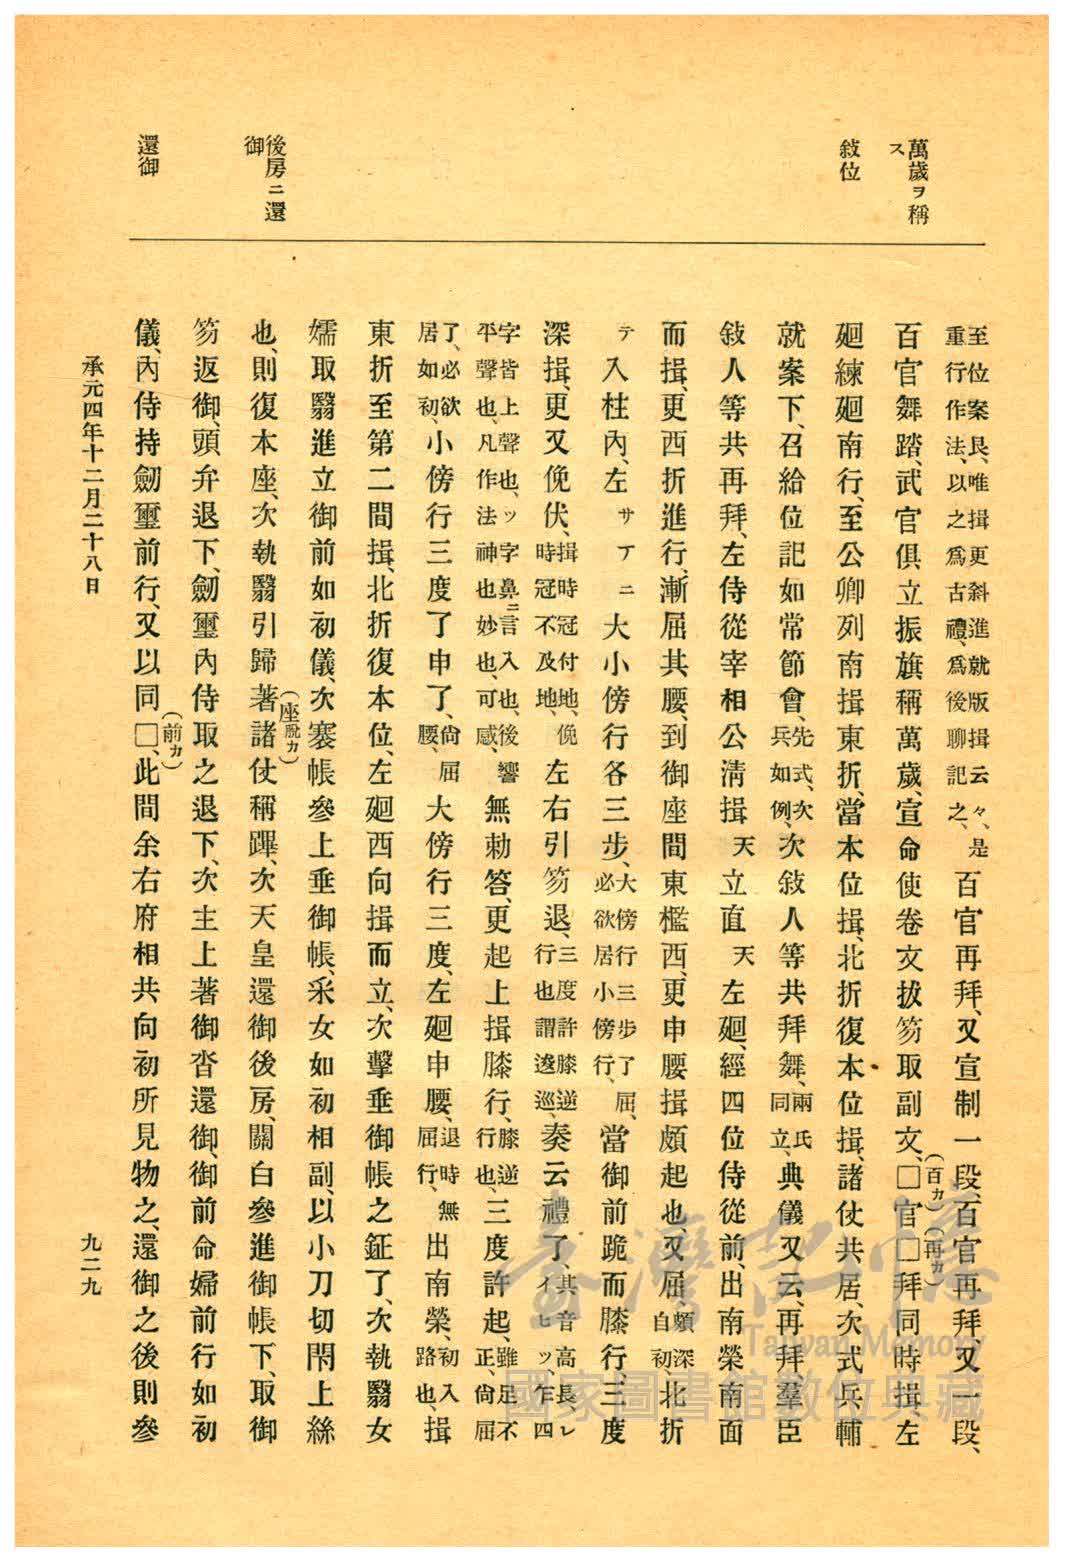 萬歲ヲ稱
ス
敍位
後房ニ還
御
還御
至位案艮、唯揖更斜進就版揖云々、是
重行作法、以之爲古禮、爲後聊記之、
百官再拜、又宣制一段、百官再拜、又一段、
百官舞踏、武官俱立振旗稱萬歲、宣命使卷文拔笏取副文、□(百カ)官□(再カ)拜同時揖左
廻練廻南行、至公卿列南揖東折、當本位揖、北折復本位揖、諸仗共居、次式兵輔
就案下、召給位記如常節會、先式、次兵如例、次敍人等共拜舞、兩氏同立、典儀又云、再拜、羣臣
敍人等共再拜、左侍從宰相公淸揖天立直天左廻、經四位侍從前、出南榮南面
而揖、更西折進行、漸屈其腰、到御座間東檻西、更申腰揖頗起也、又屈、頗深自初、北折
テ入柱內、左サ丁ニ大小傍行各三步、大傍行三步了屈、必欲居小傍行、當御前跪而膝行、三度
深揖、更又俛伏、揖時冠付地、俛時冠不及地、左右引笏退、三度許膝逆行也謂逡巡、奏云禮了、其音高長、レイヒツ、乍四
字皆上聲也、ッ字鼻ニ言入也、後響平聲也、凡作法神也妙也、可感、無勅答、更起上揖膝行、膝逆行也、三度許起、雖足不正、尙屈
了、必欲居如初、小傍行三度了申了、尙屈腰、大傍行三度、左廻申腰、退時無屈行、出南榮、初入路也、揖
東折至第二間揖、北折復本位、左廻西向揖而立、次擊垂御帳之鉦了、次執翳女
嬬取翳進立御前如初儀、次褰帳參上垂御帳、采女如初相副、以小刀切閇上絲
也、則復本座、次執翳引歸著(座脫カ)諸仗稱蹕、次天皇還御後房、關白參進御帳下、取御
笏返御、頭弁退下、劒璽內侍取之退下、次主上著御沓還御、御前命婦前行如初
儀、內侍持劒璽前行、又以同□(前カ)、此間余右府相共向初所見物之、還御之後則參
承元四年十二月二十八日
九二九
臺灣記憶
Taiwan Memory
國家圖書館數位典藏